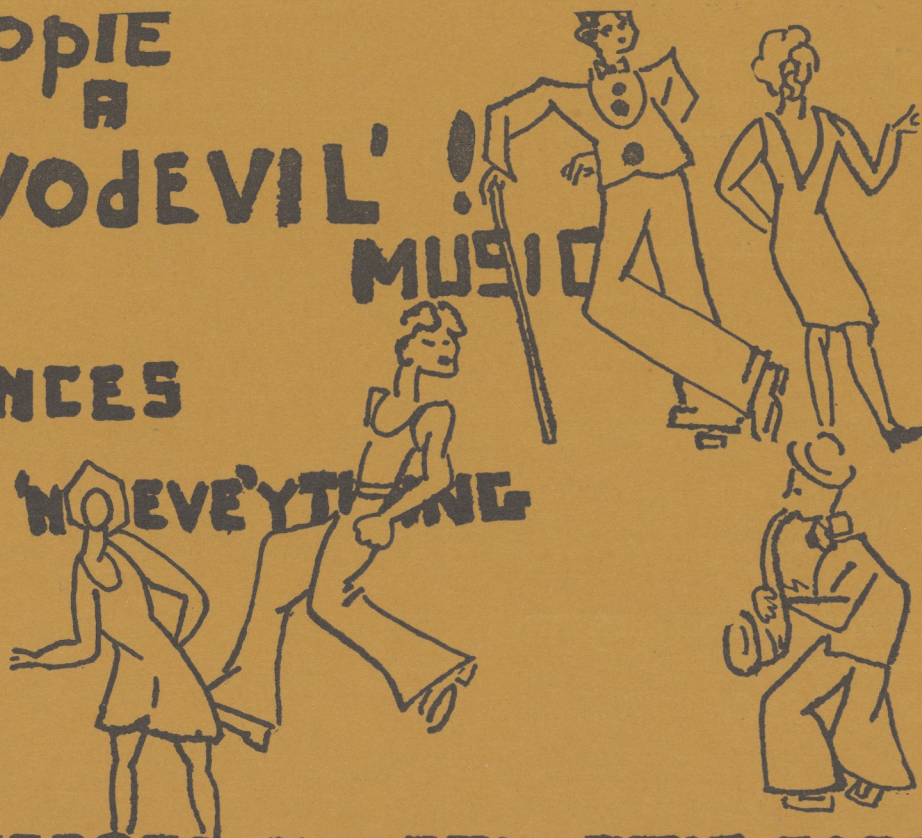 OpIE
A
VOdEVIL' !
MUSIC
NCES
'N EVE'YTHING